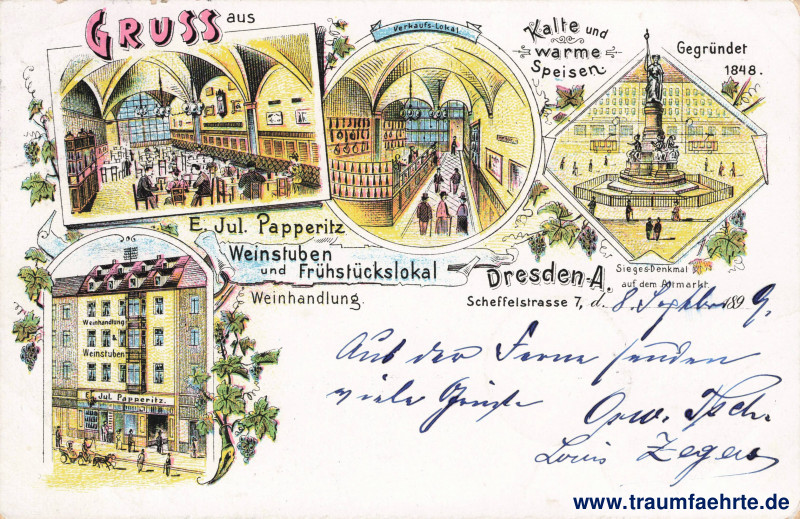 GRUSS aus
Verkaufs-Lokal
Kalte und
warme
Speisen.
Gegründet
1848.
E. Jul. Papperitz
Weinstuben
und Frühstückslokal
Weinhandlung.
Dresden-A.
Scheffelstrasse 7, d. 8. September 1899.
Sieges-Denkmal
auf dem Altmarkt.
Weinhandlung
&
Weinstuben
E. Jul. Papperitz.
Aus der Ferne senden
viele Grüße
Louis
www.traumfaehrte.de